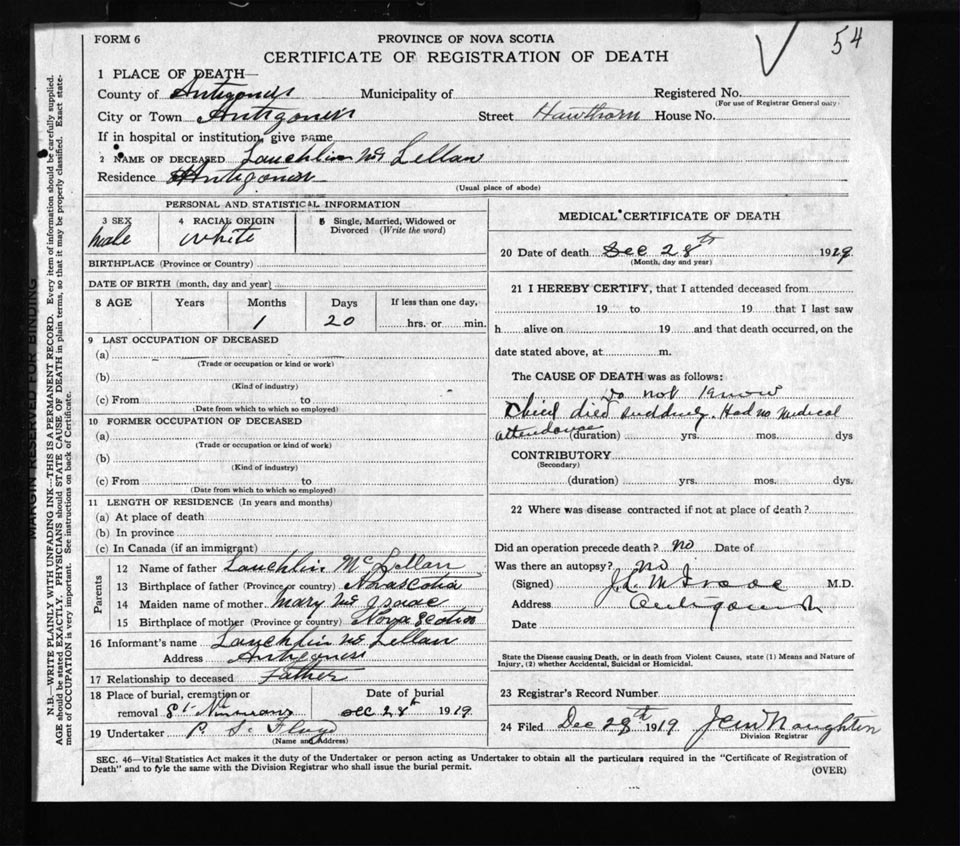 54
FORM 6
PROVINCE OF NOVA SCOTIA
CERTIFICATE OF REGISTRATION OF DEATH
1 PLACE OF DEATH—
County of Antigonish Municipality of Registered No.
(For use of Registrar General only)
City or Town Antigonish Street Hawthorn House No.
If in hospital or institution, give name
2 NAME OF DECEASED Lauchlin Mc Lellan
Residence Antigonish
(Usual place of abode)
PERSONAL AND STATISTICAL INFORMATION
3 SEX 4 RACIAL ORIGIN 5 Single, Married, Widowed or
Divorced (Write the word)
Male White
BIRTHPLACE (Province or Country)
DATE OF BIRTH (month, day and year)
8 AGE Years Months Days If less than one day,
1 20 hrs. or min.
9 LAST OCCUPATION OF DECEASED
(a)
(Trade or occupation or kind or work)
(b)
(Kind of industry)
(c) From to
(Date from which to which so employed)
10 FORMER OCCUPATION OF DECEASED
(a)
(Trade or occupation or kind of work)
(b)
(Kind of industry)
(c) From to
(Date from which to which so employed)
11 LENGTH OF RESIDENCE (In years and months)
(a) At place of death
(b) In province
(c) In Canada (if an immigrant)
Parents
12 Name of father Lauchlin McLellan
13 Birthplace of father (Province or country) Nova scotia
14 Maiden name of mother Mary Mc Isaac
15 Birthplace of mother (Province or country) Nova Scotia
16 Informant's name Lauchlin Mc Lellan
Address Antigonish
17 Relationship to deceased Father
18 Place of burial, cremation or Date of burial
removal St Ninnians Dec 28th 1919.
19 Undertaker P. S. Floyd
(Name and Address)
MEDICAL CERTIFICATE OF DEATH
20 Date of death Dec 28th 1919
(Month, day and year)
21 I HEREBY CERTIFY, that I attended deceased from
19 to 19 that I last saw
h alive on 19 and that death occurred, on the
date stated above, at m.
The CAUSE OF DEATH was as follows:
Do not Know
Chied died suddenly. Had no Medical
attendance (duration) yrs. mos. dys
CONTRIBUTORY
(Secondary)
(duration) yrs. mos. dys.
22 Where was disease contracted if not at place of death?
Did an operation precede death? no Date of
Was there an autopsy? no
(Signed) M.D.
Address Antigonish
Date
State the Disease causing Death, or in death from Violent Causes, state (1) Means and Nature of
Injury, (2) whether Accidental, Suicidal or Homicidal.
23 Registrar's Record Number
24 Filed Dec 28th 1919
Division Registrar
SEC. 46—Vital Statistics Act makes it the duty of the Undertaker or person acting as Undertaker to obtain all the particulars required in the "Certificate of Registration of
Death" and to fyle the same with the Division Registrar who shall issue the burial permit.
(OVER)
MARGIN RESERVED FOR BINDING
N.B.—WRITE PLAINLY WITH UNFADING INK—THIS IS A PERMANENT RECORD. Every item of information should be carefully supplied.
AGE should be stated EXACTLY. PHYSICIANS should STATE CAUSE OF DEATH in plain terms, so that it may be properly classified. Exact state-
ment of OCCUPATION is very important. See instructions on back of Certificate.